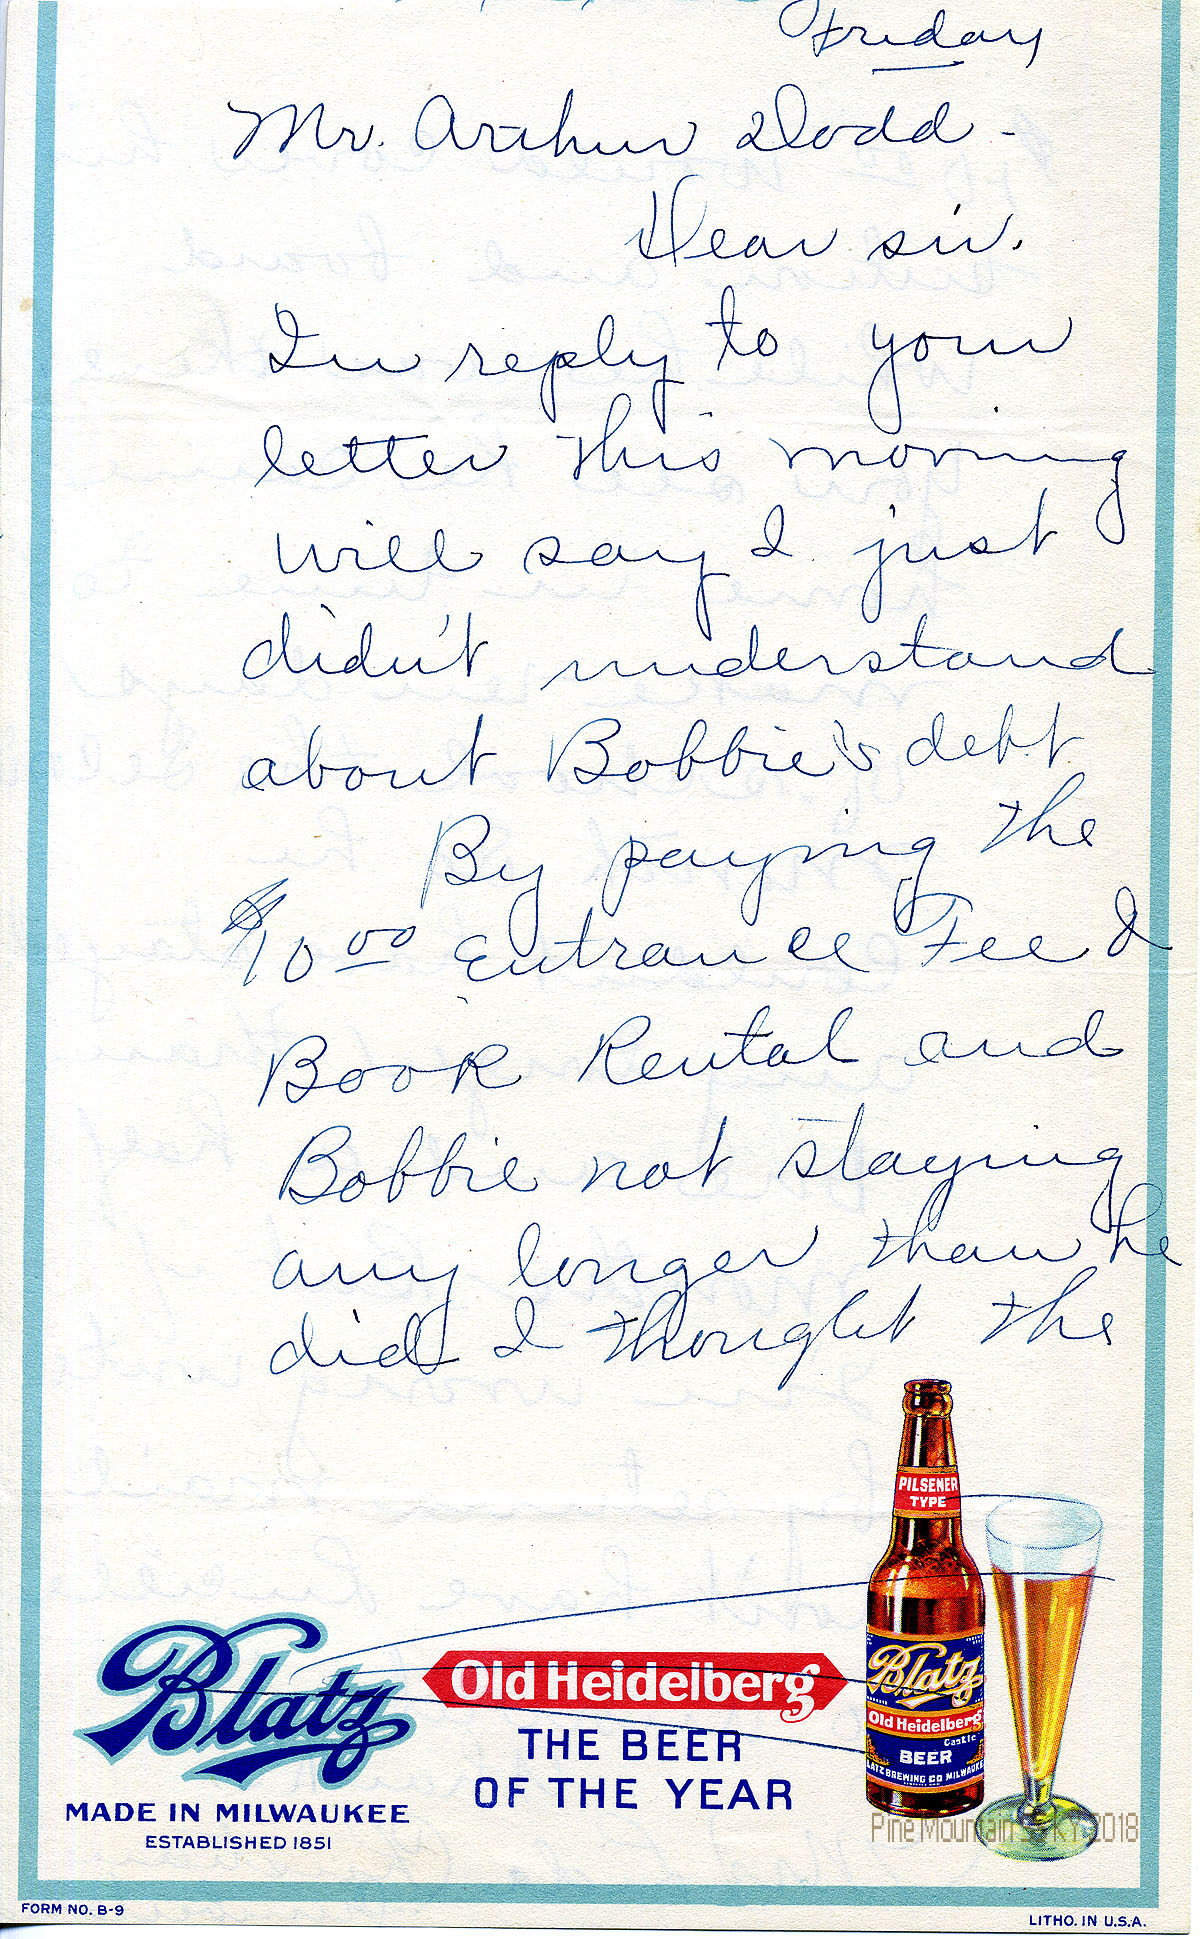 Friday
Mr. Arthur Dodd -
Dear sir.
In reply to your
letter this morning
will say I just
didn't understand
about Bobbie's debt.
By paying the
$10 00 Entrance Fee &
Book Rental and
Bobbie not staying
any longer than he
did I thought the
PILSENER
TYPE
Blatz
Old Heidelberg
THE BEER
OF THE YEAR
MADE IN MILWAUKEE
ESTABLISHED 1851
Blatz
Old Heidelberg
Castle
BEER
BLATZ BREWING CO MILWAUKEE
FORM NO. B-9
LITHO. IN U.S.A.